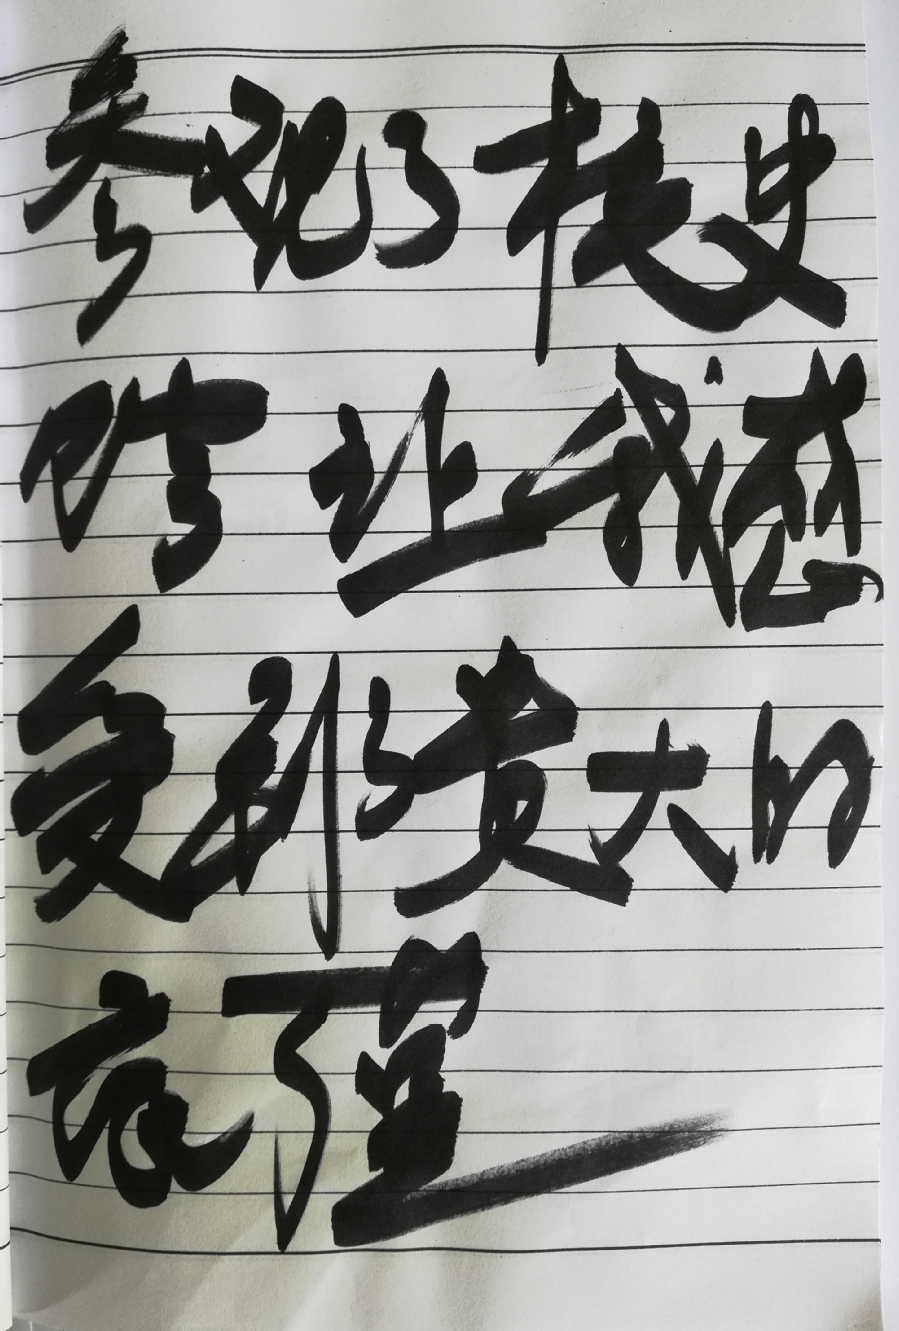 参观了校史
馆 让我感
受到了贵大的
底蕴